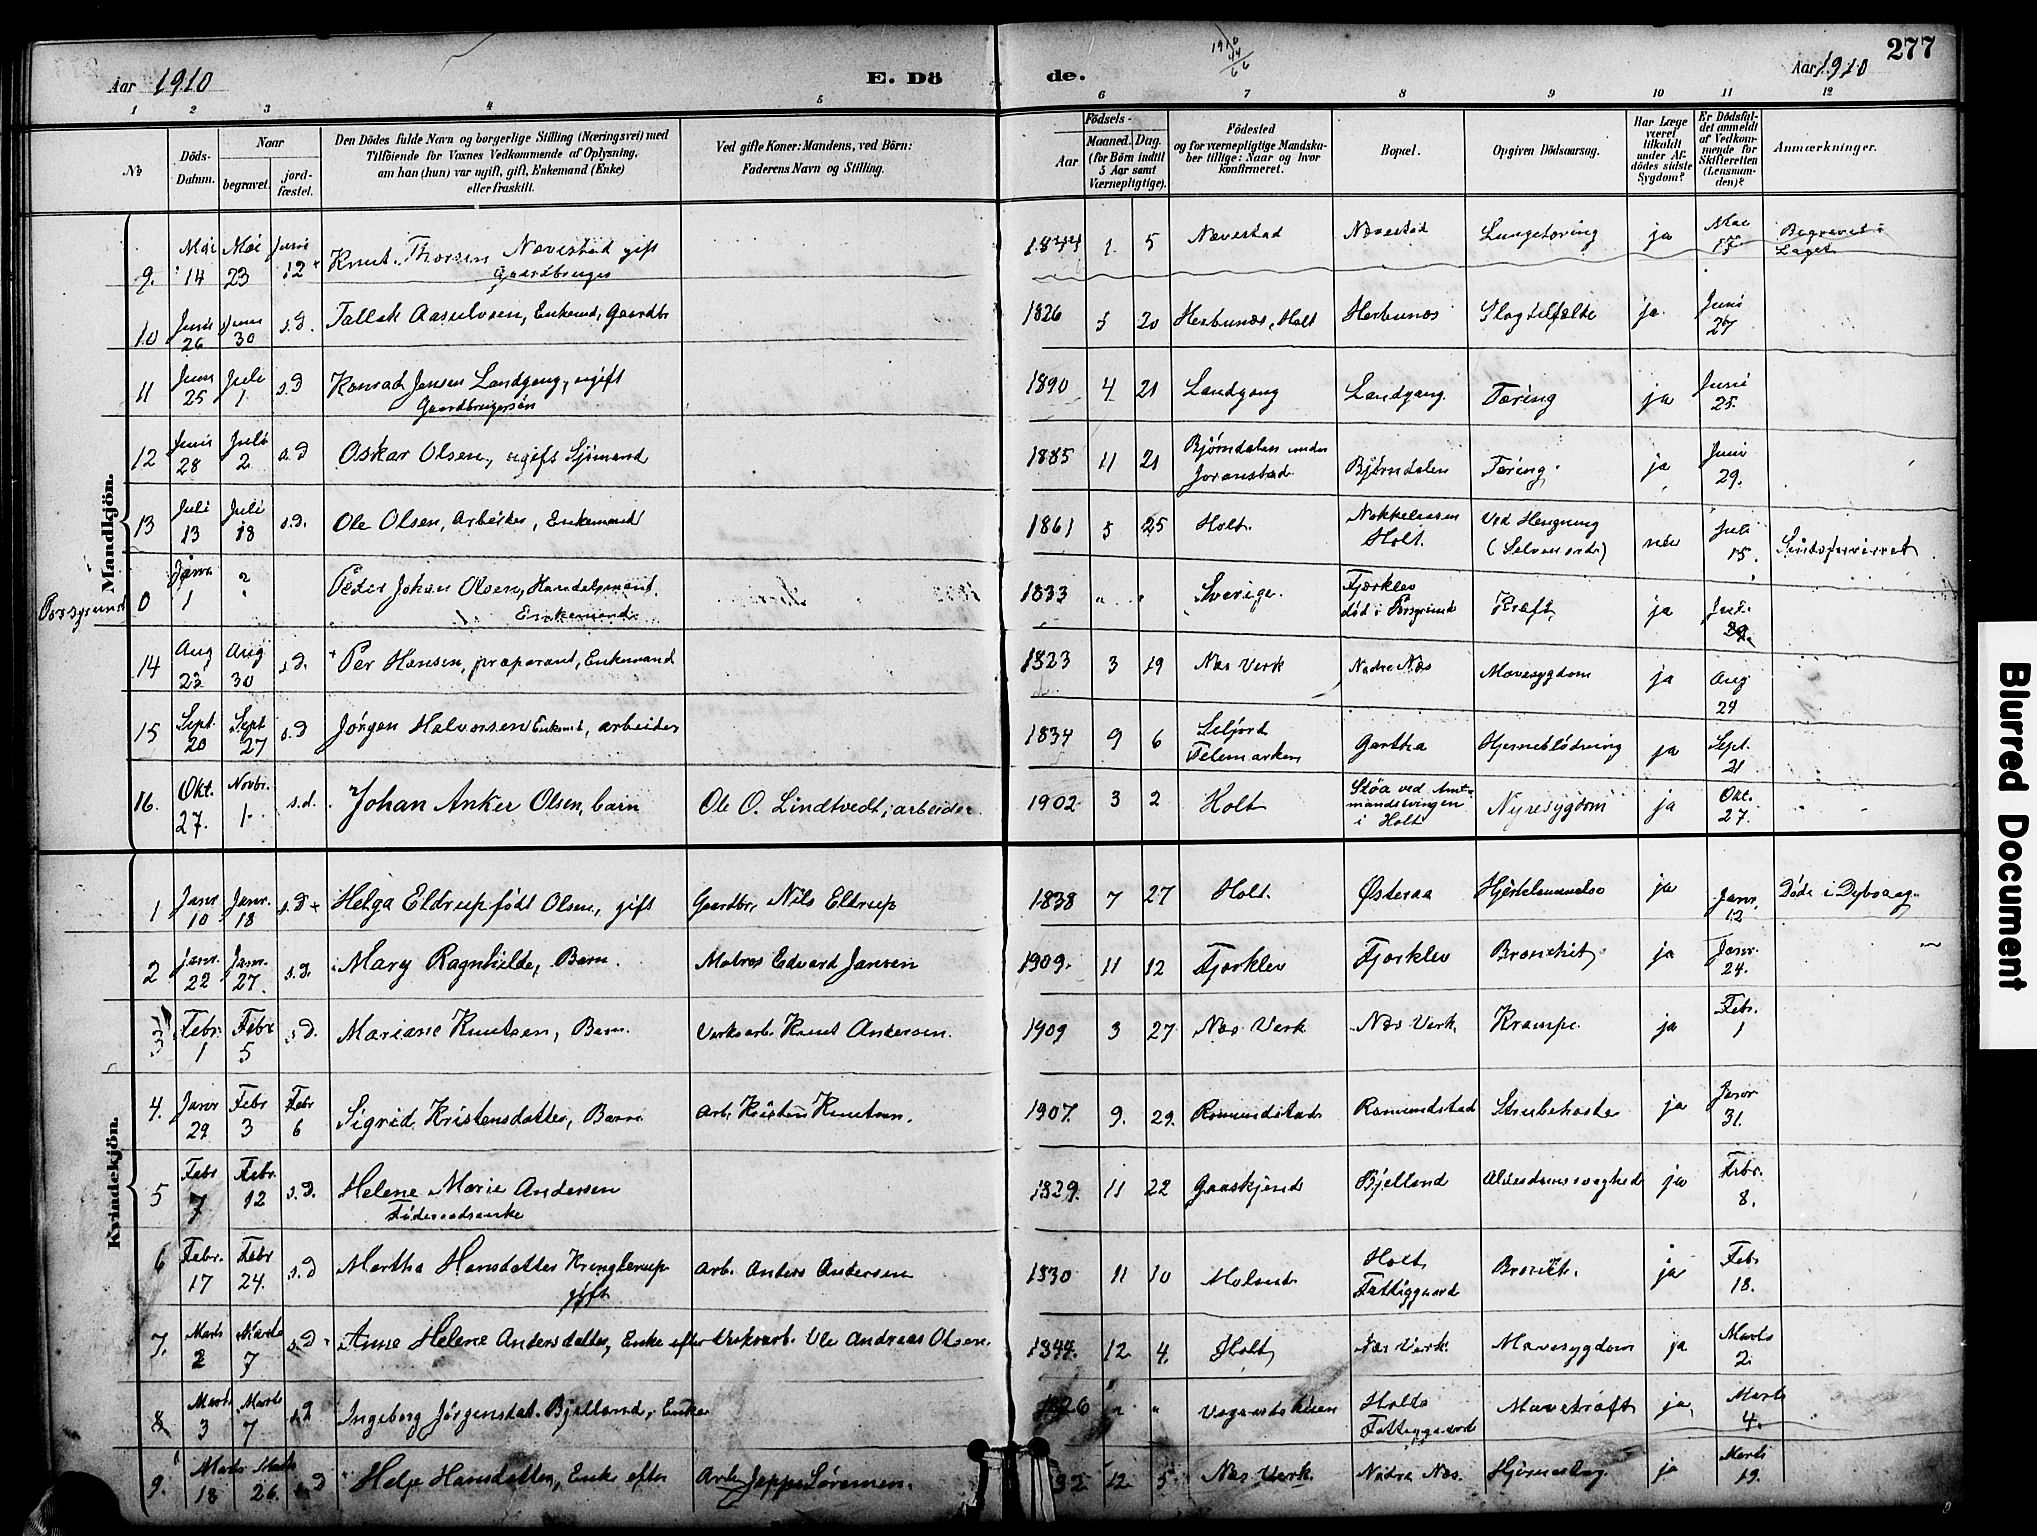 277
Aar 1910
E. Döde.
1910
44
66
Aar 1910
1 2 3 4 5 6 7 8 9 10 11 12
No
Döds-Datum.
Naar
begravet.
jord-fæstet.
Den Dödes fulde Navn og borgerlige Stilling (Næringsvei) med
Tilföiende for Voxnes Vedkommende af Oplysning,
om han (hun) var ugift, gift, Enkemand (Enke)
eller fraskilt.
Ved gifte Koner: Mandens, ved Börn:
Faderens Navn og Stilling.
Födsels-
Aar
Maaned. Dag.
(for Börn indtil
5 Aar samt
Værnepligtige).
Födested
og for værnepligtige Mandska-
ber tillige: Naar og hvor
konfirmeret.
Bopæl.
Opgiven Dödsaarsag.
Har Læge
været
tilkaldt
under Af-
dödes sidste
Sygdom?
Er Dödsfal-
det anmeldt
af Vedkom-
mende for
Skifteretten
(Lensman-
den)?
Anmærkninger.
Mandkjön.
9. Mai 14 Mai 23 Juni 12 Knut Thorsen Nævestad gift Gaardbruger 1844 1. 5 Nævestad Nævestad Lungetæring ja Mai 15 Begravet i Laget
10 Juni 26 Juni 30 s.D. Tallak Aasulvsen, Enkemd, Gaardbr 1826 5 20 Hesbunæs, Holt Hesbunæs Slagtilfælde ja Juni 27
11 Juni 25 Juli 1 s.D Konrad Jensen Landgang, ugift Gaardbrugersön 1890 4 21 Landgang Landgang Tæring ja Juni 25.
12 Juni 28 Juli 2 s.D Oskar Olsen, ugift Sjömand 1885 11 21 Bjørndalen under Joranstad Bjørndalen Tæring. ja Juni 29.
13 Juli 13 Juli 18 s.D. Ole Olsen, Arbeider, Enkemand 1861 5 25 Holt. Holt. Ved Hengning (Selvmord) nei Juli 15. Sindsforvirret
Porsgrund 0 Janr 1 ? Peder Johan Olsen, Handelsmand, Enkemand. 1833 " " Sverige. Fjærklev död i Porsgrund Kræft, ja
14 Aug 23 Aug 30 s.D. Per Hansen, præparant, Enkemand 1823 3 19 Næs Verk Nedre Næs Mavesygdom ja Aug 24
15 Sept. 20 Sept 27 s.D Jörgen Halvorsen Enkemd, arbeider 1834 9 6 Seljord Telemarken Gartha Hjerneblödning ja Sept. 21
16. Okt. 27. Novbr. 1 s.d. Johan Anker Olsen, barn Ole O. Lindtvedt, arbeider 1902 3 2 Holt Støa ved Amtmandsvingen i Holt Nyresygdom ja Okt. 27.
Kvindekjön.
1 Janr 10 Janr. 18 s.D Helga Eldrup född Olsen, gift Gaardbr. Nils Eldrup 1838 7 27 Holt. Østeraa Hjertelammelse ja Janr. 12 Döde i Dybvaag.
2 Janr. 22 Janr. 27. s.D. Mary Ragnhilde, Barn. Matros Edvard Jansen 1909. 11 12 Fjærklev Fjærklev Bronchit ja Janr. 24.
3 Febr. 1 Febr 5 s.D. Mariane Knutsen, Barn. Verksarb. Knut Andersen. 1909 3 27 Næs Verk Næs Verk. Krampe. ja Febr. 1
4. Janr 29 Febr 3 Febr 6 Sigrid Kristensdatter, Barn. Arb. Kristen Knutsen. 1907. 9. 29. Romundstad Romundstad Strubehoste ja Janr 31.
5 Febr 7 Febr. 12 s.D. Helene Marie Andersen Föderaadsenke 1829. 11 22 Gaaskjend Bjelland Alderdomssvaghed ja Febr. 8.
6 Febr. 17 Febr 24. s.D Martha Hansdatter Kringlerup gift Arb. Anders Andersen 1830 11 10 Moland Holt Fattiggaard Bronch. ja Feb. 18.
7. Marts 2 Marts 7 s.D Anne Helene Andersdatter, Enke efter Verksarb. Ole Andreas Olsen. 1844. 12 4. Holt Næs Verk Mavesygdom ja Marts 2.
8 Marts 3 Marts 7 s.D Ingeborg Jörgensdat. Bjelland, Enke " " Holts Fattiggaard Mavekræft ja, Marts 4.
9. Marts 18 Marts 26. s.D Helje Hansdatter, Enke efter Arb. Jeppe Sörensen. 32 12 5 Næs Verk Nedre Næs. Hjerneslag. ja Marts 19.
Blurred Document